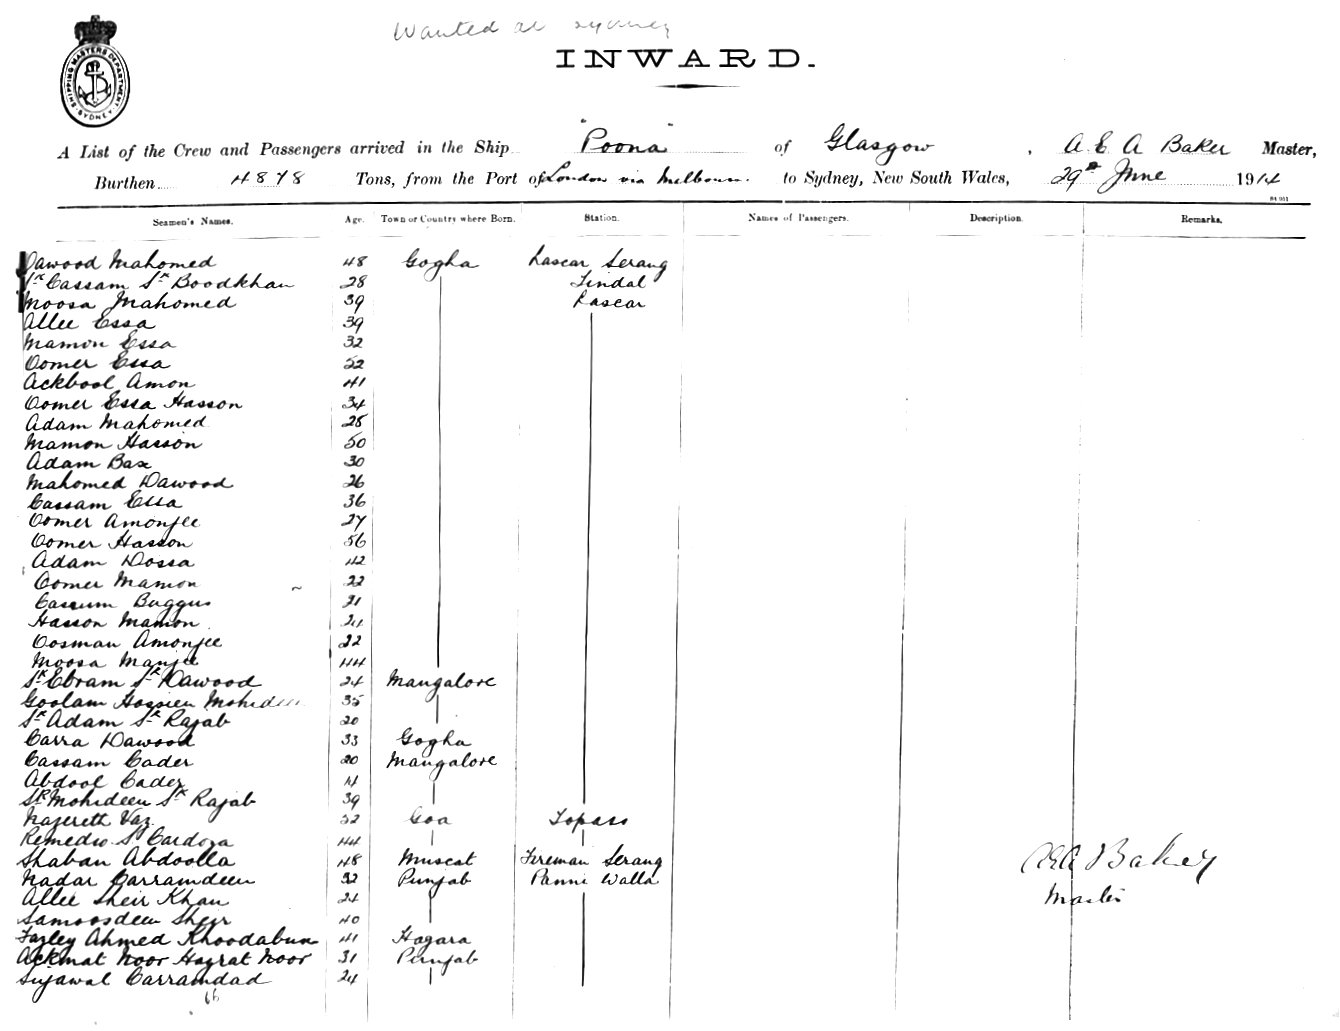 Wanted at Sydney
SHIPPING MASTERS DEPARTMENT SYDNEY
INWARD.
A List of the Crew and Passengers arrived in the Ship "Poona" of Glasgow, A E A Baker Master,
Burthen 4878 Tons, from the Port of London via Melbourn. to Sydney, New South Wales, 29th June 1914
Seamen's Names. Age. Town or Country where Born. Station. Names of Passengers. Description. Remarks.
Dawood Mahomed 48 Gogha Lascar Serang
Sk Cassam Sk Boodkhan 28 Tindal
Moosa Mahomed 39 Lascar
Allee Essa 39
Mamon Essa 32
Oomer Essa 52
Ackbool Amon 41
Oomer Essa Hasson 34
Adam Mahomed 28
Mamon Hasson 50
Adam Bax 30
Mahomed Dawood 26
Cassam Essa 36
Oomer Amonjee 27
Oomer Hasson 56
Adam Dossa 42
Oomer Mamon 22
Cassum Buggus 21
Hasson Mamon 24
Oosman Amonjee 22
Moosa Manjee 44
Sk Ebram Sk Dawood 24 Mangalore
Goolam Hossien Mohideen 35
Sk Adam Sk Rajab 20
Carra Dawood 33 Gogha
Cassam Cader 20 Mangalore
Abdool Cader
Sk Mohideen Sk Rajab 39
Nazereth Vaz 32 Goa Topass
Remedio S Cardoza 44
Shaban Abdoolla 48 Muscat Fireman Serang A E A Baker
Nadar Carramdeen 32 Punjab Panni Walla
Allee Sheir Khan 24 Master
Samoosdeen Sheir 40
Fazley Ahmed Khoodabun 41 Hazara
Ackmat Noor Hazrat Noor 31 Punjab
Sujawal Carramdad 24